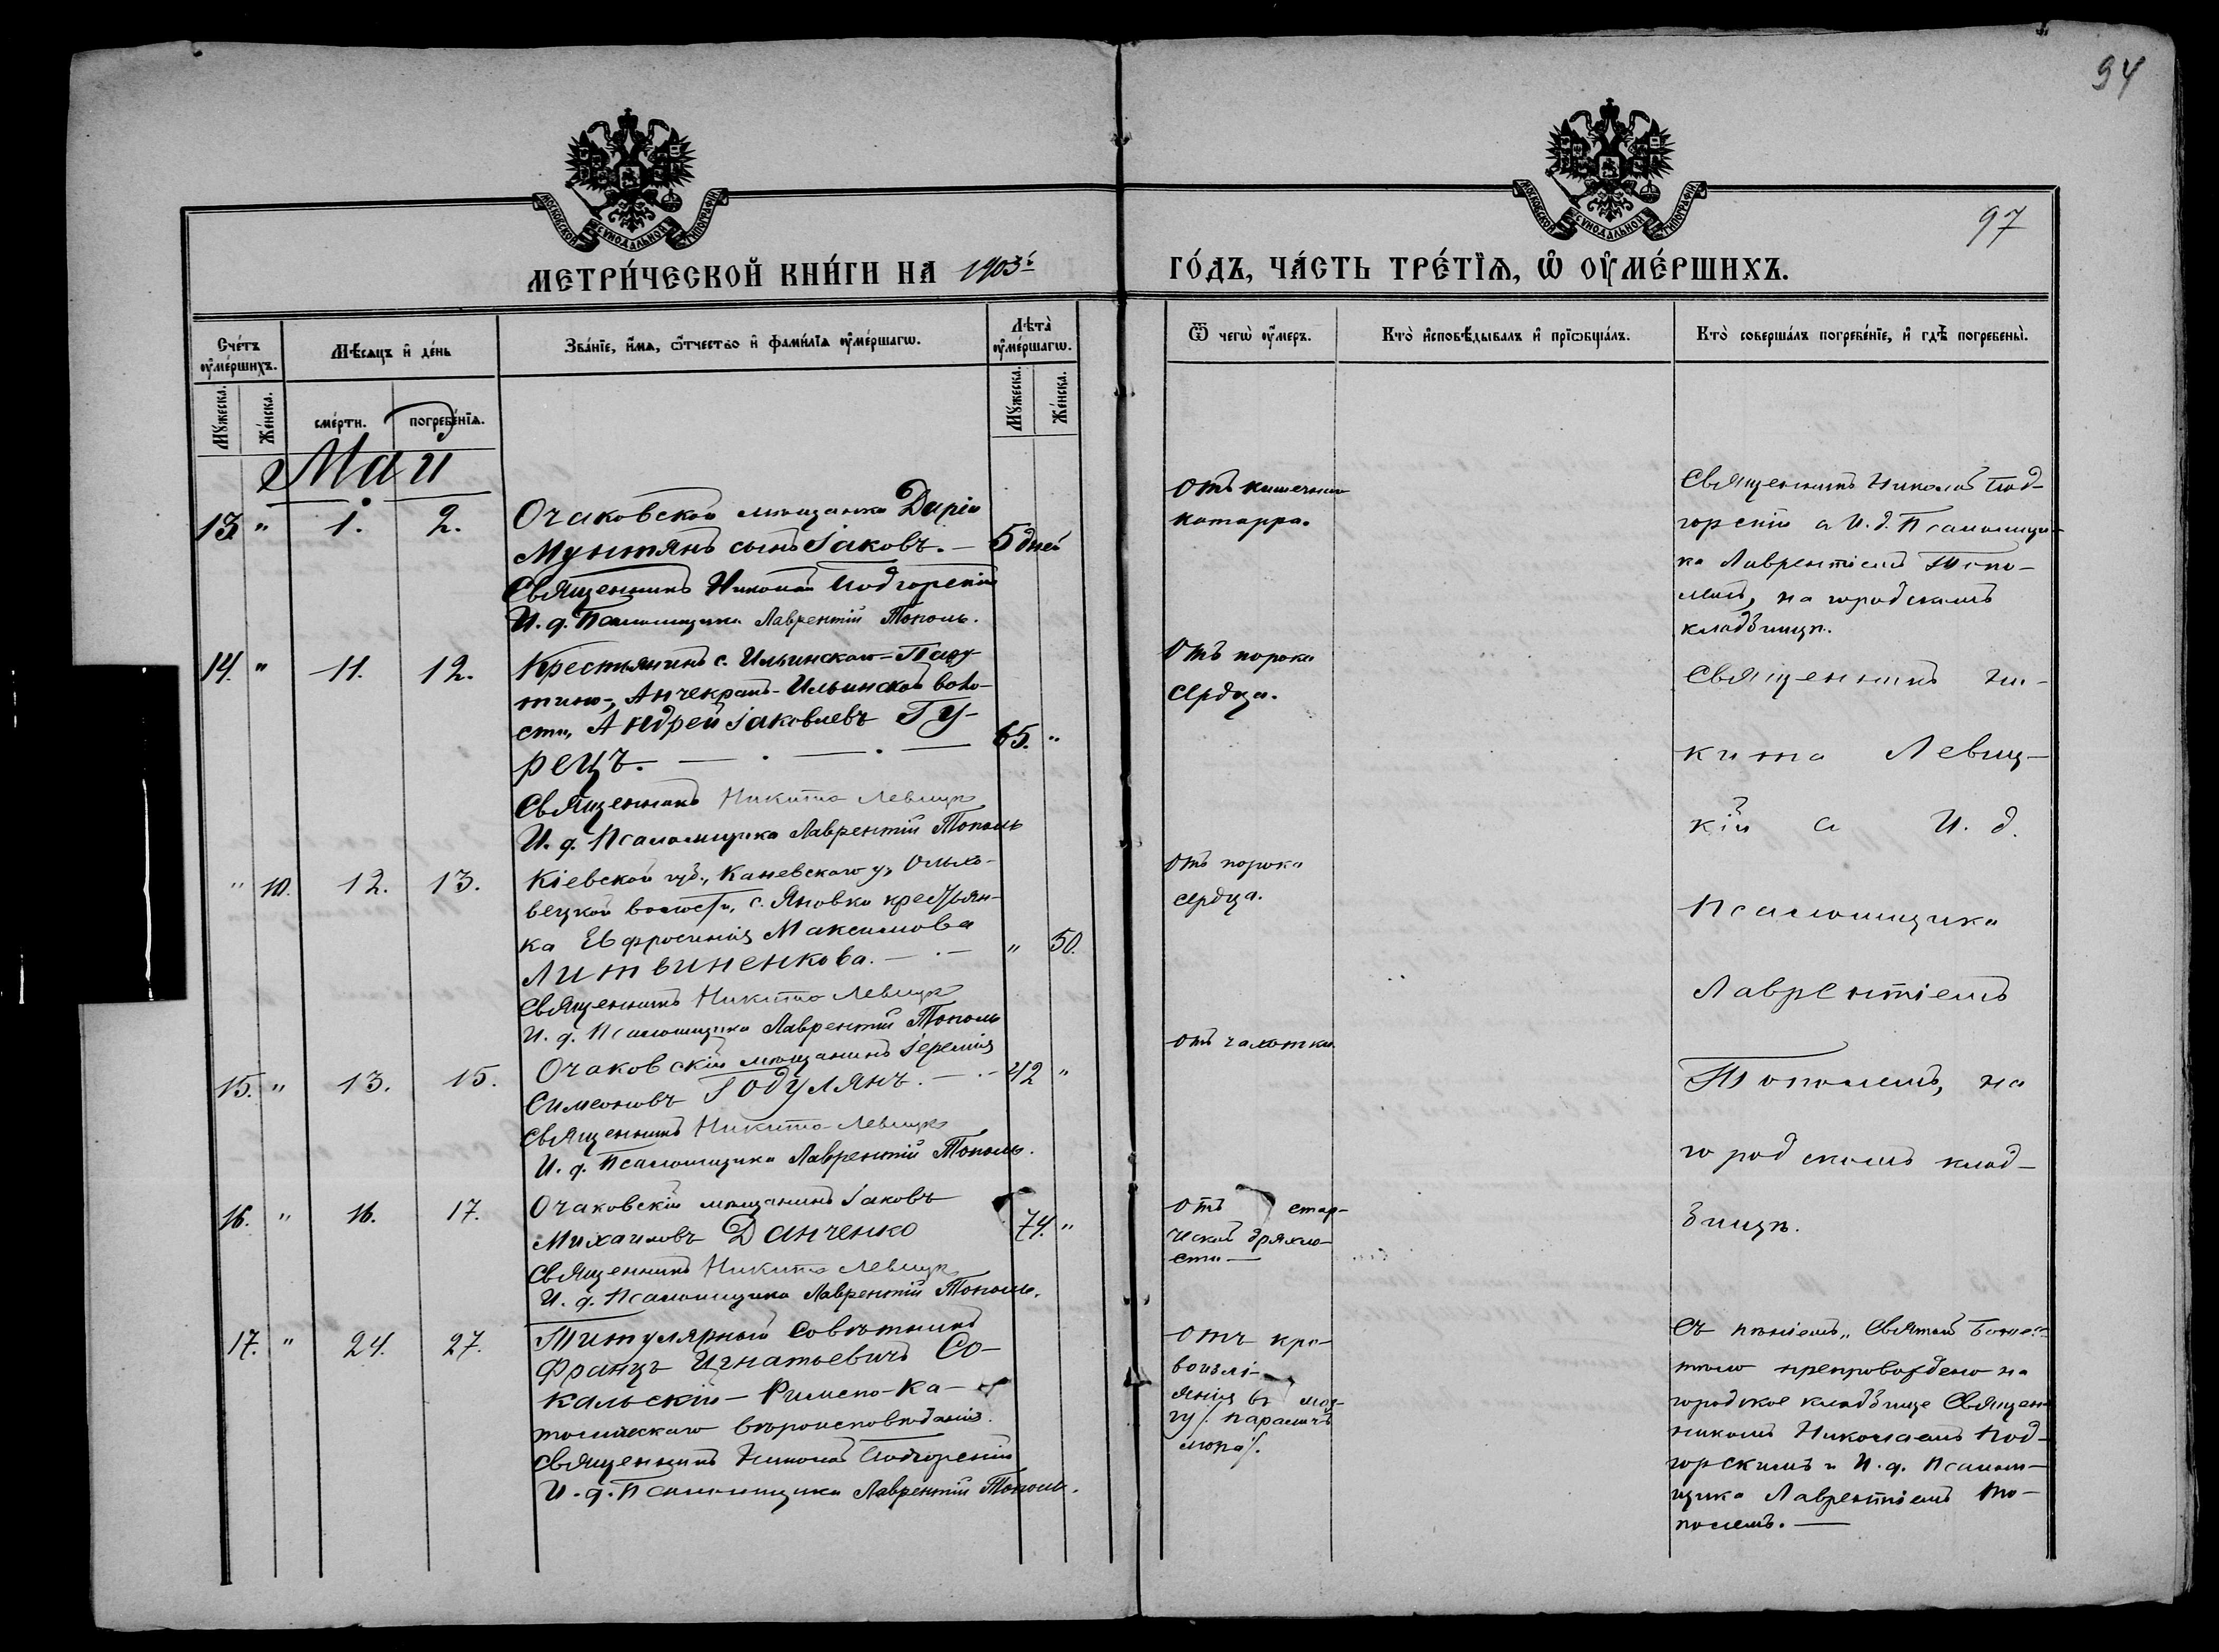 94
МОСКОВСКОЙ СѴНОДАЛЬНОЙ ТИПОГРАФІИ
МОСКОВСКОЙ СѴНОДАЛЬНОЙ ТИПОГРАФІИ
97
МЕТРИ́ЧЕСКОЙ КНИ́ГИ НА 1903й
ГО́ДЪ, ЧА́СТЬ ТРЕ́ТІѦ, Ѽ ОУ҆МЕ́РШИХЪ.
Сче́тъ оу҆ме́ршихъ.
Мѣ́сѧцъ и҆ де́нь
Зва́нїе, и҆́мѧ, ѻ҆́тчество и҆ фами́лїѧ оу҆ме́ршагѡ.
Лѣта̀ оу҆ме́ршагѡ.
Ѿ чегѡ̀ оу҆́меръ.
Кто̀ и҆сповѣ́дывалъ и҆ прїѡбща́лъ.
Кто̀ соверша́лъ погребе́нїе, и҆ гдѣ̀ погребены̀.
Мꙋ́жеска.
Же́нска.
сме́рти.
погребе́нїѧ.
Мꙋ́жеска.
Же́нска.
Май
13. " 1. 2.
Очаковской мѣщанки Даріи
Мунтянъ сынъ Іаковъ. — 5 дней
Священникъ Николай Подгорскій
И. д. Псаломщика Лаврентій Тополь.
Отъ кишечнаго
катарра.
Священникъ Николай Под-
горскій а И. д. Псаломщи-
ка Лаврентіемъ Топо-
лемъ, на городскомъ
кладбищѣ.
14. " 11. 12.
Крестьянинъ с. Ильинскаго-Тару-
тино-, Анчекракъ-Ильинской воло-
сти, Андрей Іаковлевъ Гу-
рецъ. — . — . — 65. "
Священникъ Никита Левицк
И. д. Псаломщика Лаврентій Тополь
Отъ порока
сердца.
Священникъ Ни-
кита Левиц-
кій а И. д.
Псаломщика
Лаврентіемъ
Тополемъ, на
городскомъ клад-
бищѣ.
" 10. 12. 13.
Кіевской губ., Каневскаго у, Ольхо-
вецкой волости, с. Яновки крестьян-
ка Евфросинія Максимова
Литвиненкова. — . — " 50.
Священникъ Никита Левицк
И. д. Псаломщика Лаврентій Тополь
Отъ порока
сердца.
15. " 13. 15.
Очаковскій мѣщанинъ Іеремія
Симеоновъ Годулянъ. — . — 42 "
Священникъ Никита Левицк
И. д. Псаломщика Лаврентій Тополь.
Отъ чахотки
16. " 16. 17.
Очаковскій мѣщанинъ Іаковъ
Михаиловъ Данченко 74. "
Священникъ Никита Левицк
И. д. Псаломщика Лаврентій Тополь.
Отъ стар-
ческой дряхло-
сти —
17. " 24. 27.
Титулярный Совѣтникъ
Францъ Игнатьевичъ Со-
кальскій — Римско-Ка-
толическаго вѣроисповѣданія.
Священникъ Николай Подгорскій
И. д. Псаломщика Лаврентій Тополь.
Отъ кро-
воизлі-
янія въ моз-
гу /: параличъ
мозга /.
Съ пѣніемъ „Святый Боже"
тѣло препровождено на
городское кладбище Священ-
никомъ Николаемъ Под-
горскимъ и И. д. Псалом-
щика Лаврентіемъ То-
полемъ. —